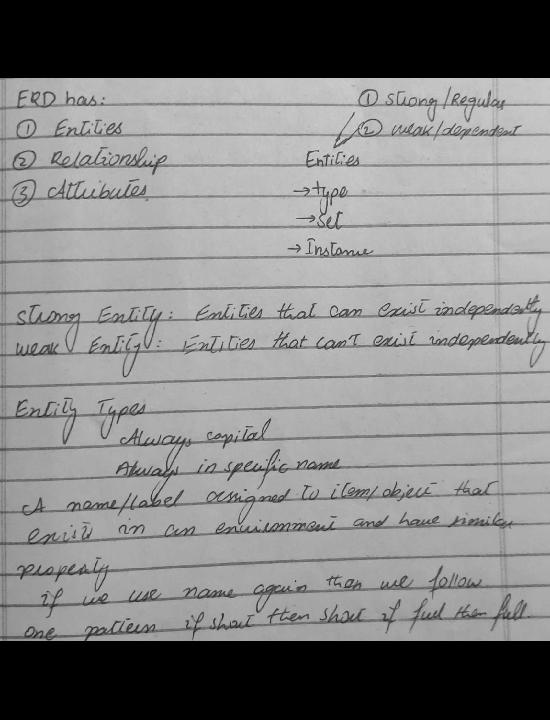 ERD has:
① Entities
② Relationship
③ Attributes.
① Strong/Regular
② weak/dependent
Entities
→ type
→ Set
→ Instance
Strong Entity: Entities that can exist independently
weak Entity: Entities that can't exist independently
Entity Types
Always capital
Always in specific name
A name/label assigned to item/object that
exists in an environment and have similar
property
if we use name again then we follow
one pattern if short then short if full then full.